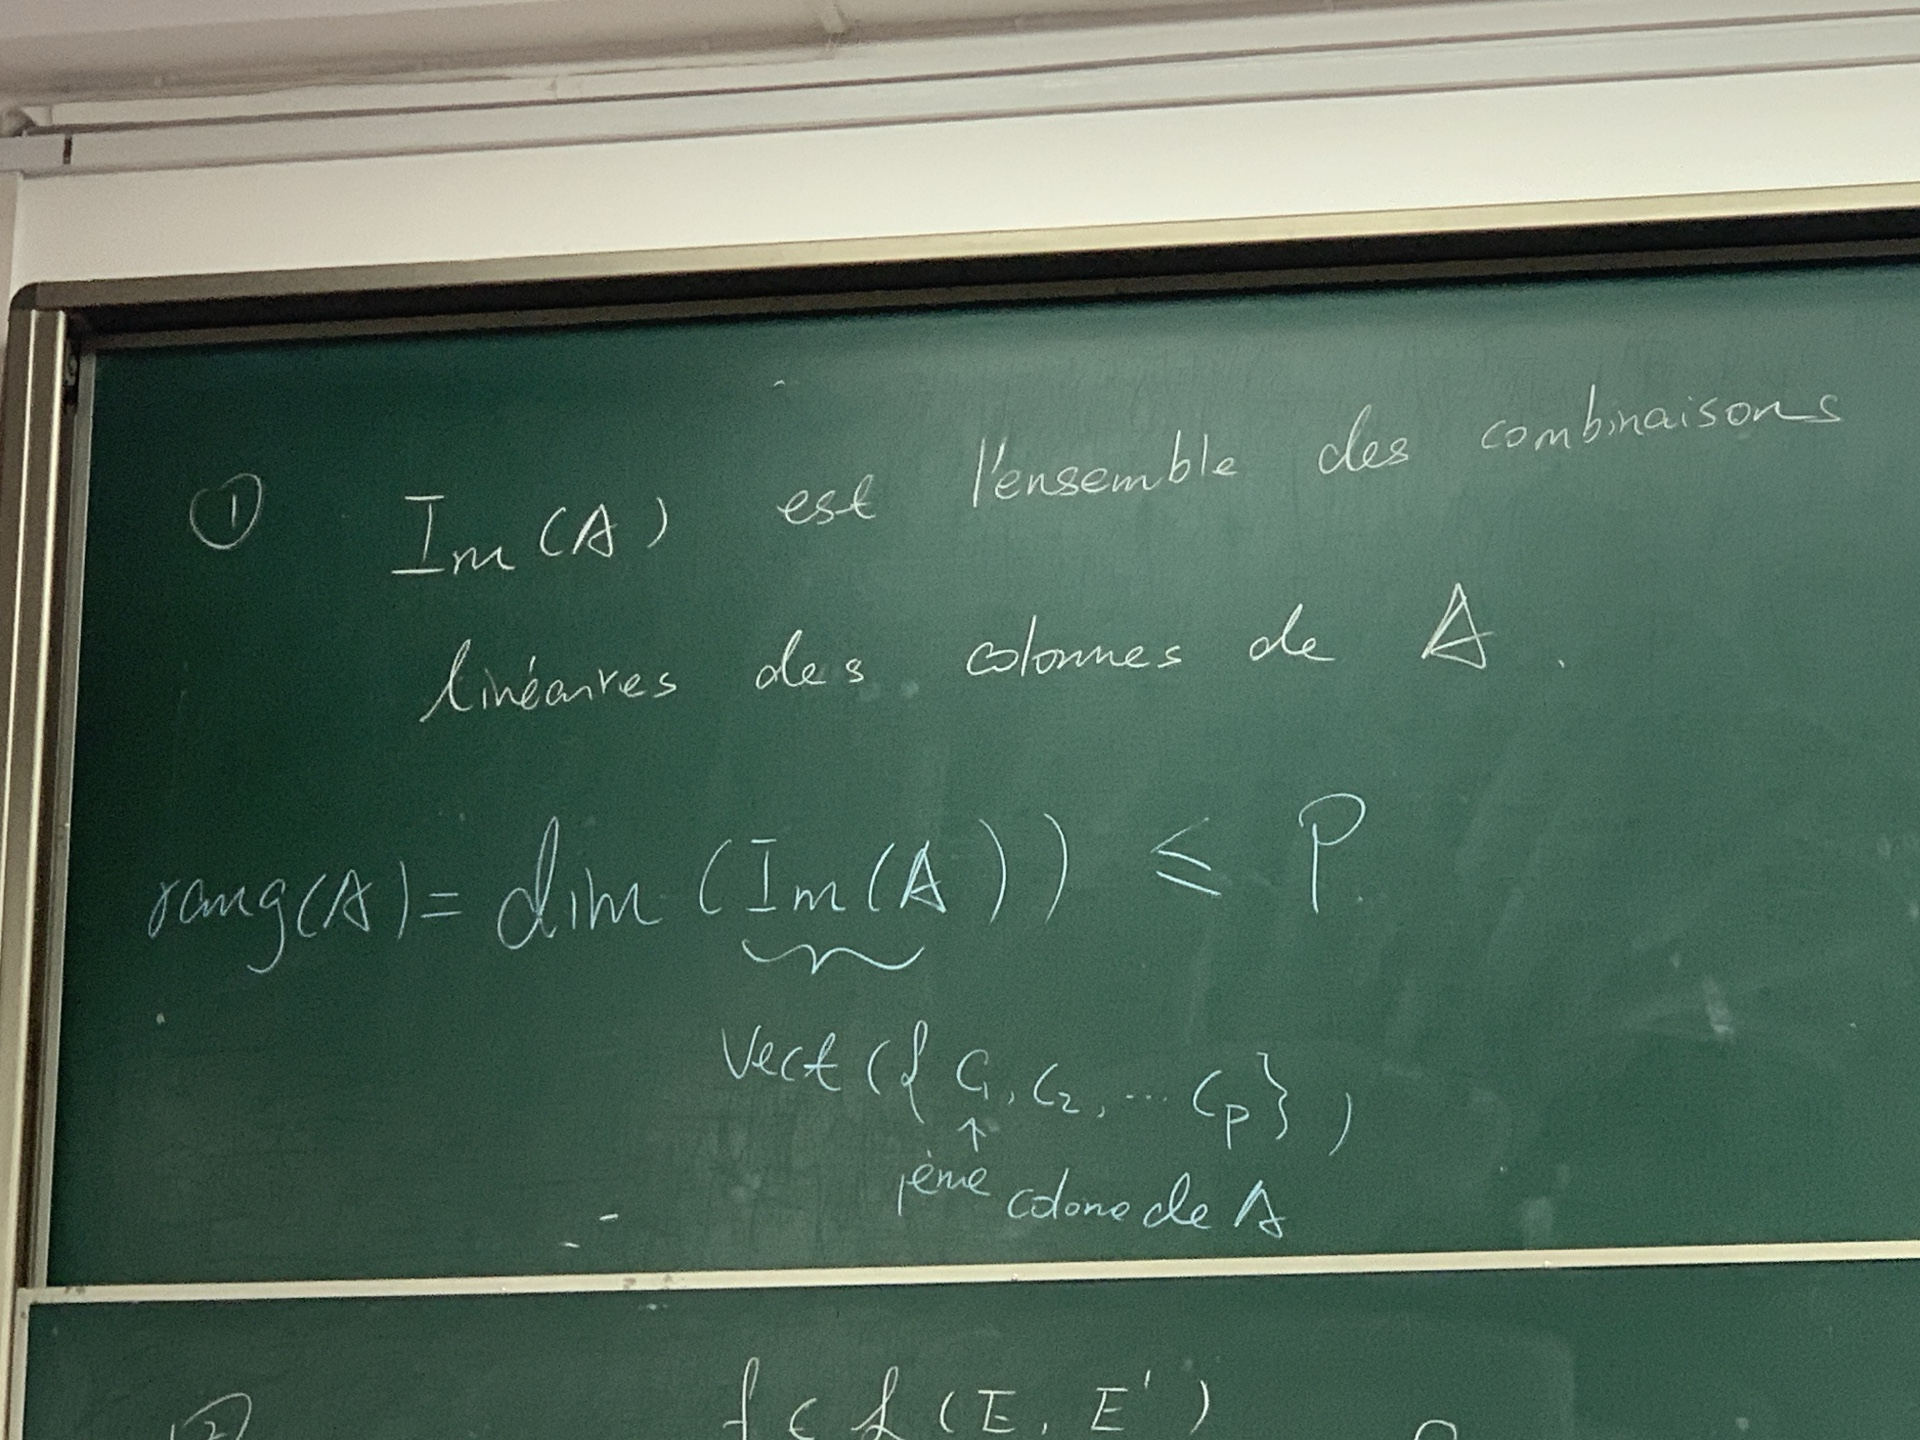 ① Im(A) est l'ensemble des combinaisons
linéaires des colonnes de A.
rang(A) = dim(Im(A)) ≤ P.
Vect({C₁, C₂, ... Cp})
↑
1ème colone de A
② f ∈ L(E, E')